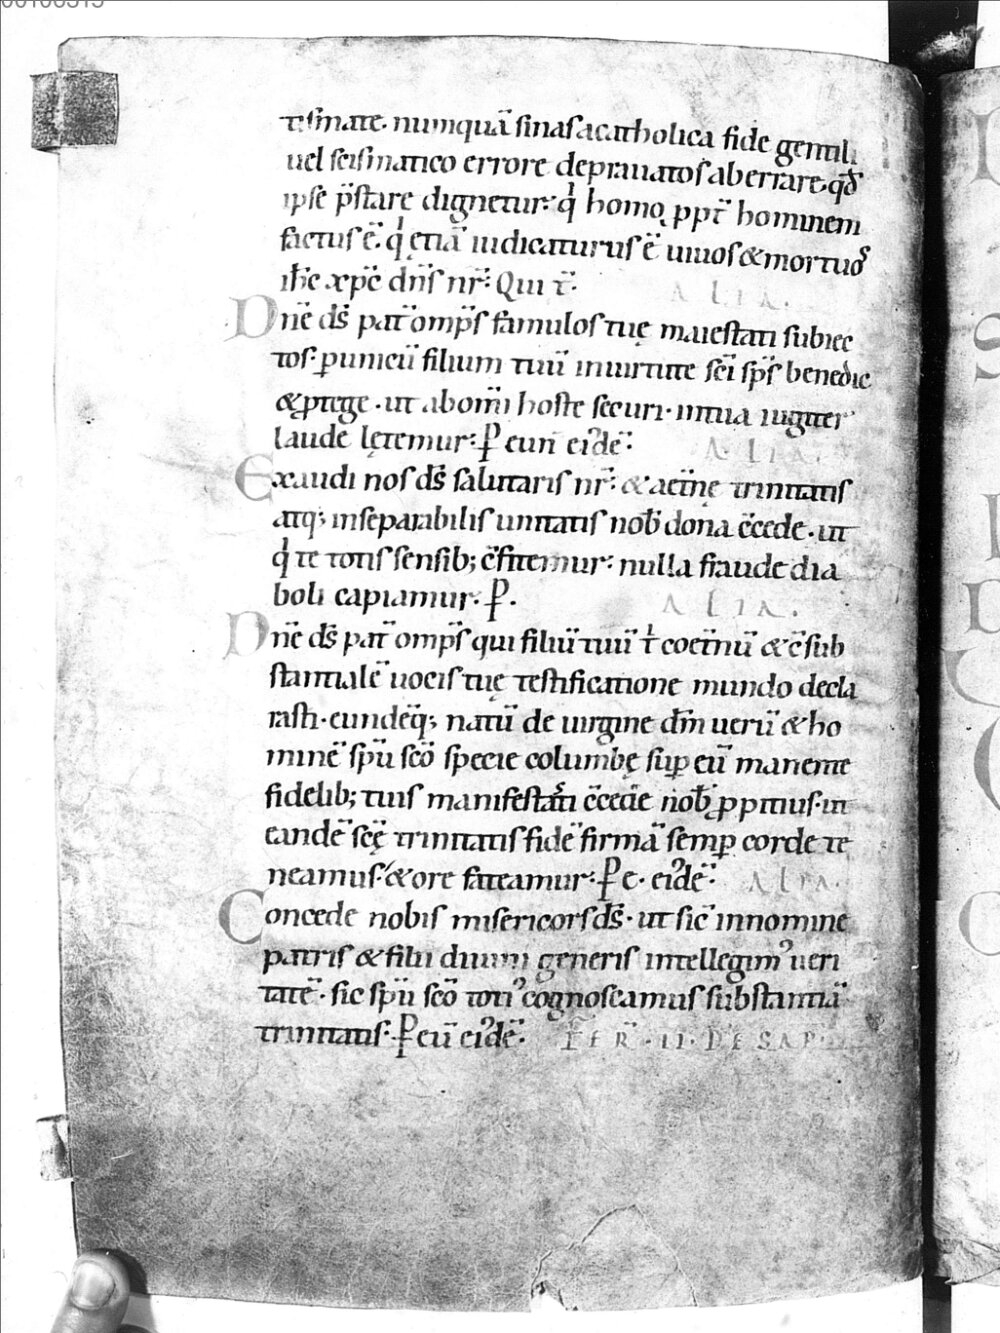 tismate. numquā sinas a catholica fide gentili
uel scismatico errore deprauatos aberrare. qd̄
ipse p̄stare dignetur: qͥ homo ppt̄ hominem
factus ē. qͥ etiā iudicaturus ē uiuos & mortuos
ih̄c xp̄c dn̄s nr̄: Qui t̄.
ALIA.
Dn̄e ds̄ pat̄ omp̄s famulos tuę maiestati subiec
tos. ꝑ unicū filium tuū in uirtute sc̄i sp̄s benedic
& ꝓtege. ut ab om̄i hoste securi. in tua iugiter
laude lętemur: ꝑ eun eiꝰdē:
ALIA.
Exaudi nos ds̄ salutaris nr̄: & aet̄nę trinitatis
atq; inseparabilis unitatis nob̄ dona c̄cede. ut
qͥ te totis sensib; c̄fitemur: nulla fraude dia
boli capiamur. ꝑ.
ALIA.
Dn̄e ds̄ pat̄ omp̄s qui filiū tuū tͥ coet̄nū & c̄sub
stantialē uocis tuę testificatione mundo decla
rasti. eundēq; natū de uirgine dm̄ uerū & ho
minē sp̄u sc̄o specie columbę suꝑ eū manente
fidelib; tuis manifestasti c̄cede nob̄ ꝓpitius. in
eandē sc̄ę trinitatis fidē firmā semꝑ corde te
neamus. & ore fateamur: ꝑ e. eiꝰdē:
ALIA.
Concede nobis misericors ds̄. ut sic̄ in nomine
patris & filii diuini generis intellegimꝰ ueri
tatē. sic sp̄u sc̄o totiꝰ cognoscamus substantiā
trinitatis. ꝑ eū eiꝰdē.
FER̄. II. DE SAP.